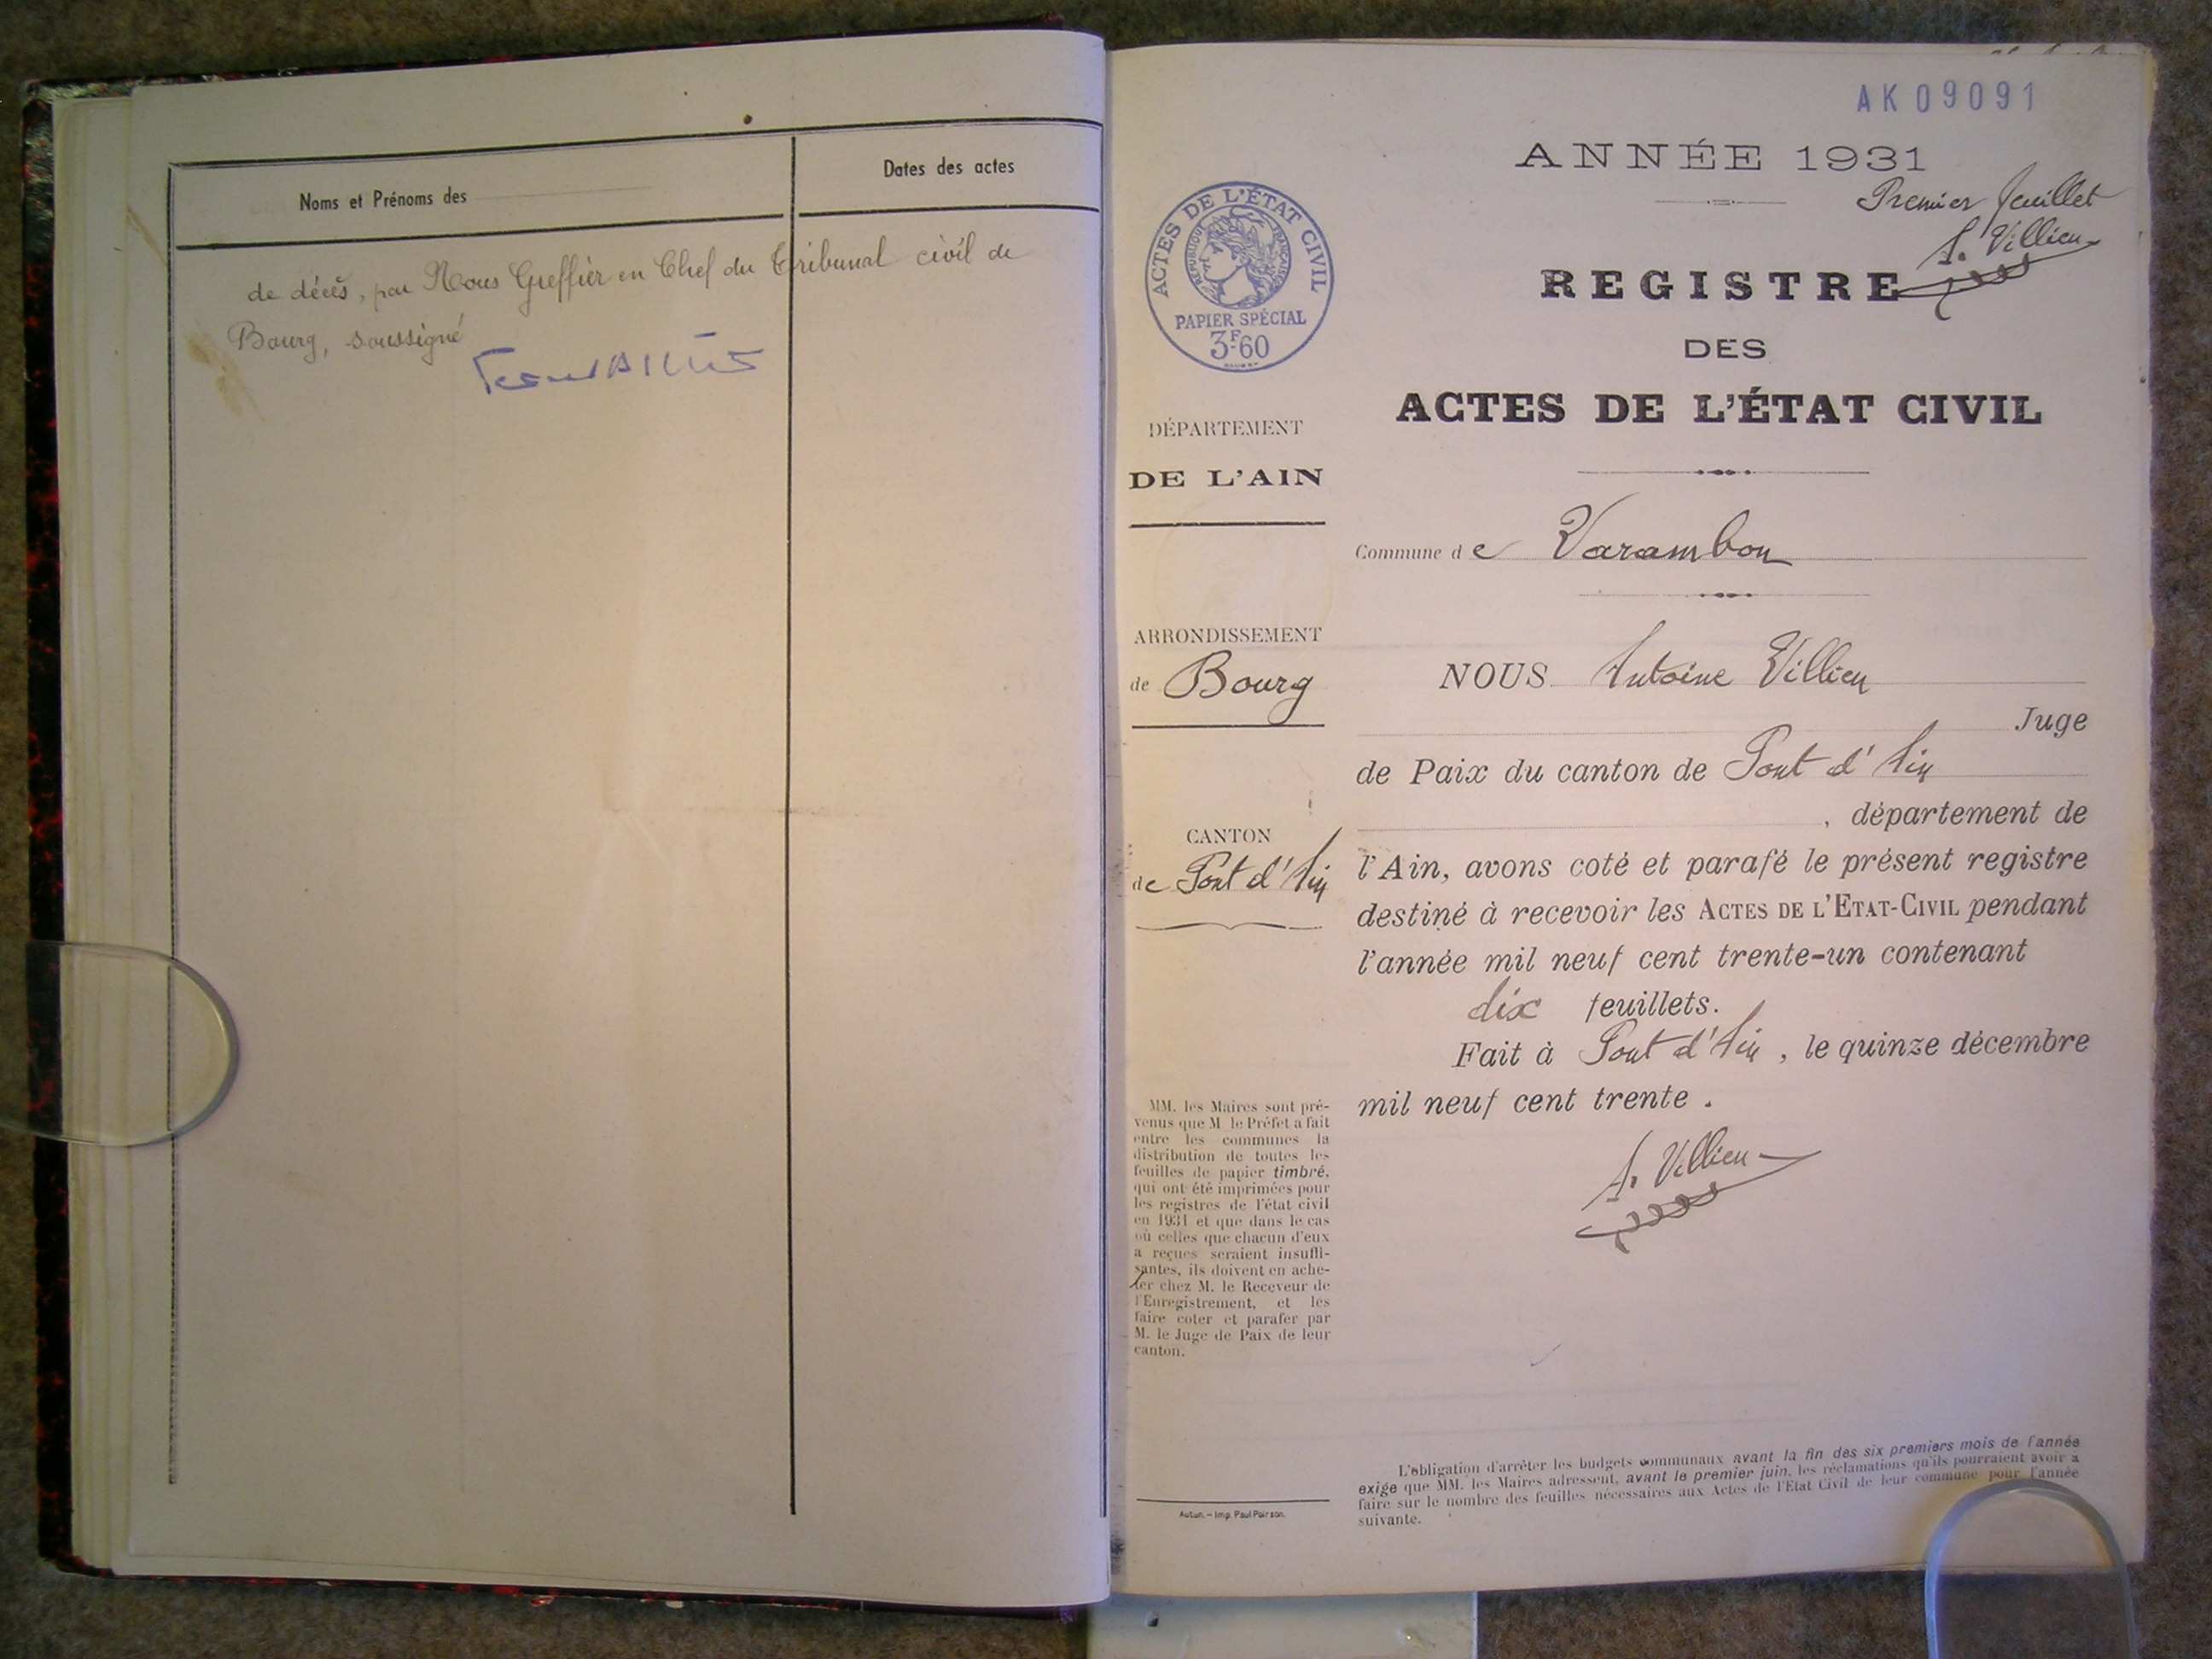 Noms et Prénoms des
Dates des actes
de décès, par Nous Greffier en Chef du Tribunal civil de
Bourg, soussigné
AK09091
ANNÉE 1931
Premier feuillet
A. Villieu
REGISTRE
DES
ACTES DE L'ÉTAT CIVIL
ACTES DE L'ÉTAT CIVIL
RÉPUBLIQUE FRANÇAISE
PAPIER SPÉCIAL
3F60
DÉPARTEMENT
DE L'AIN
Commune de Varambon
ARRONDISSEMENT
de Bourg
CANTON
de Pont d'Ain
NOUS Antoine Villieu
Juge
de Paix du canton de Pont d'Ain
, département de
l'Ain, avons coté et parafé le présent registre
destiné à recevoir les ACTES DE L'ETAT-CIVIL pendant
l'année mil neuf cent trente-un contenant
dix feuillets.
Fait à Pont d'Ain, le quinze décembre
mil neuf cent trente.
A. Villieu
MM. les Maires sont pré-
venus que M le Préfet a fait
entre les communes la
distribution de toutes les
feuilles de papier timbré,
qui ont été imprimées pour
les registres de l'état civil
en 1931 et que dans le cas
où celles que chacun d'eux
a reçues seraient insuffi-
santes, ils doivent en ache-
ter chez M. le Receveur de
l'Enregistrement, et les
faire coter et parafer par
M. le Juge de Paix de leur
canton.
Autun. — Imp. Paul Pairson.
L'obligation d'arrêter les budgets communaux avant la fin des six premiers mois de l'année
exige que MM. les Maires adressent, avant le premier juin, les réclamations qu'ils pourraient avoir a
faire sur le nombre des feuilles nécessaires aux Actes de l'Etat Civil de leur commune pour l'année
suivante.